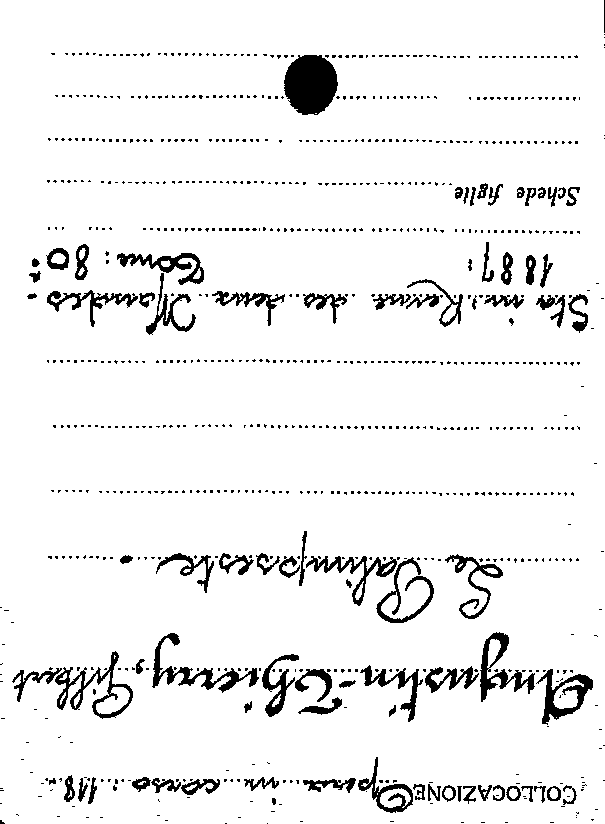 COLLOCAZIONE Opera in corso: 118.
Augustin-Thierry, Gilbert
Le Palimpseste.
Sta in: Revue des deux Mondes.
1887: Tome: 80º:
Schede figlie